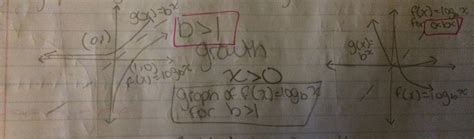 g(x)=b^x
(0,1)
(1,0)
f(x)=log_b x
b>1
grouth
x>0
graph of f(x)=log_b x
for b>1
f(x)=log_b x
for 0<b<1
g(x)=
b^x
f(x)=log_b x